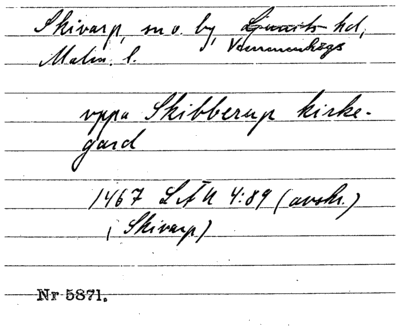 Skivarp, sn o. by, Ljunits hd,
Vemmenhögs
Malm. l.
uppa Skibberup kirke-
gard
1467 LÅU 4:89 (avskr.)
(Skivarp)
Nr 5871.